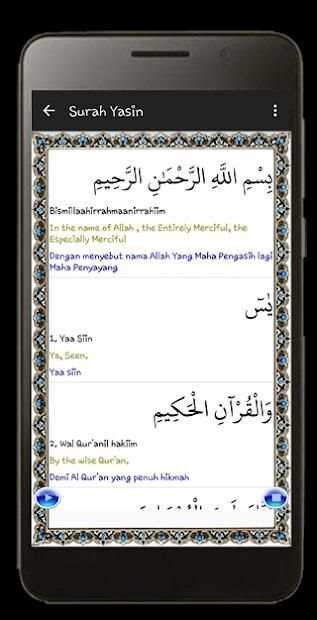 Surah Yasin
بِسْمِ اللَّهِ الرَّحْمَٰنِ الرَّحِيمِ
Bismillaahirrahmaanirrahiim
In the name of Allah , the Entirely Merciful, the
Especially Merciful
Dengan menyebut nama Allah Yang Maha Pengasih lagi
Maha Penyayang
يٰسٓ
1. Yaa Siin
Ya, Seen.
Yaa siin
وَالْقُرْآنِ الْحَكِيمِ
2. Wal Qur'anil hakiim
By the wise Qur'an.
Demi Al Qur'an yang penuh hikmah